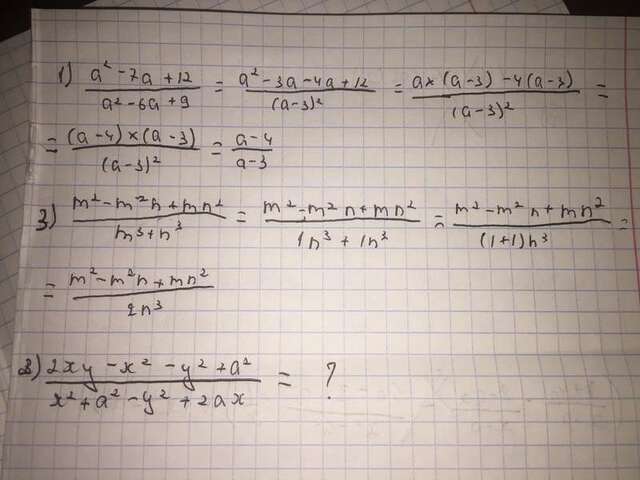 1) a² - 7a + 12 / a² - 6a + 9 = a² - 3a - 4a + 12 / (a - 3)² = a × (a - 3) - 4(a - 3) / (a - 3)² =
= (a - 4) × (a - 3) / (a - 3)² = a - 4 / a - 3
3) m² - m²n + mn² / n³ + n³ = m² - m²n + mn² / 1n³ + 1n³ = m² - m²n + mn² / (1 + 1)n³ =
= m² - m²n + mn² / 2n³
2) 2xy - x² - y² + a² / x² + a² - y² + 2ax = ?